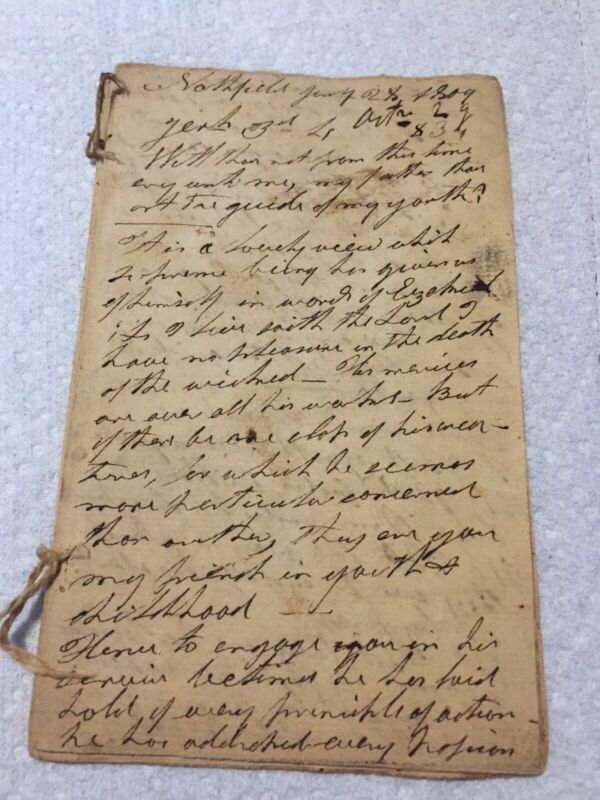 Northfield Jany 28 1809
Jerh 3d 4, Octr 29
834
Wilt thou not from this time
cry unto me, my father thou
art the guide of my youth?
It is a lovely view which
Supreme being has given us
of himself in words of Ezekiel
As I live saith the Lord I
have no pleasure in the death
of the wicked — His mercies
are over all his works — But
if there be one class of his crea-
tures, for which he seemes
more perticular concerned
than another, they are you
my friends in youth &
childhood —
Hence to engage you in his
service betimes he has laid
hold of every principle of action —
he has addressed every passion